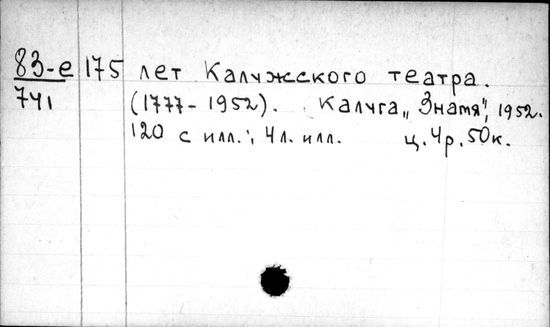 83-е 175 лет Калужского театра.
741 (1777-1952). Калуга, "Знамя", 1952.
120 с илл.; 4л. илл. ц. 4р. 50к.